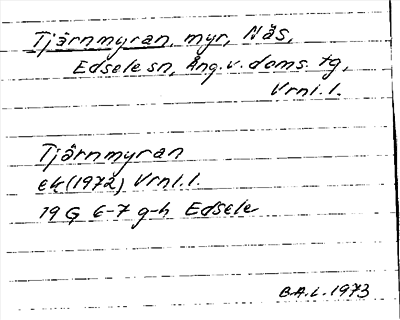 Tjärnmyran, myr, Näs,
Edsele sn, Ång. v. doms. tg,
Vrnl.l.
Tjärnmyran
ek (1972) Vrnl.l.
19 G 6-7 g-h Edsele
B.A.L. 1973